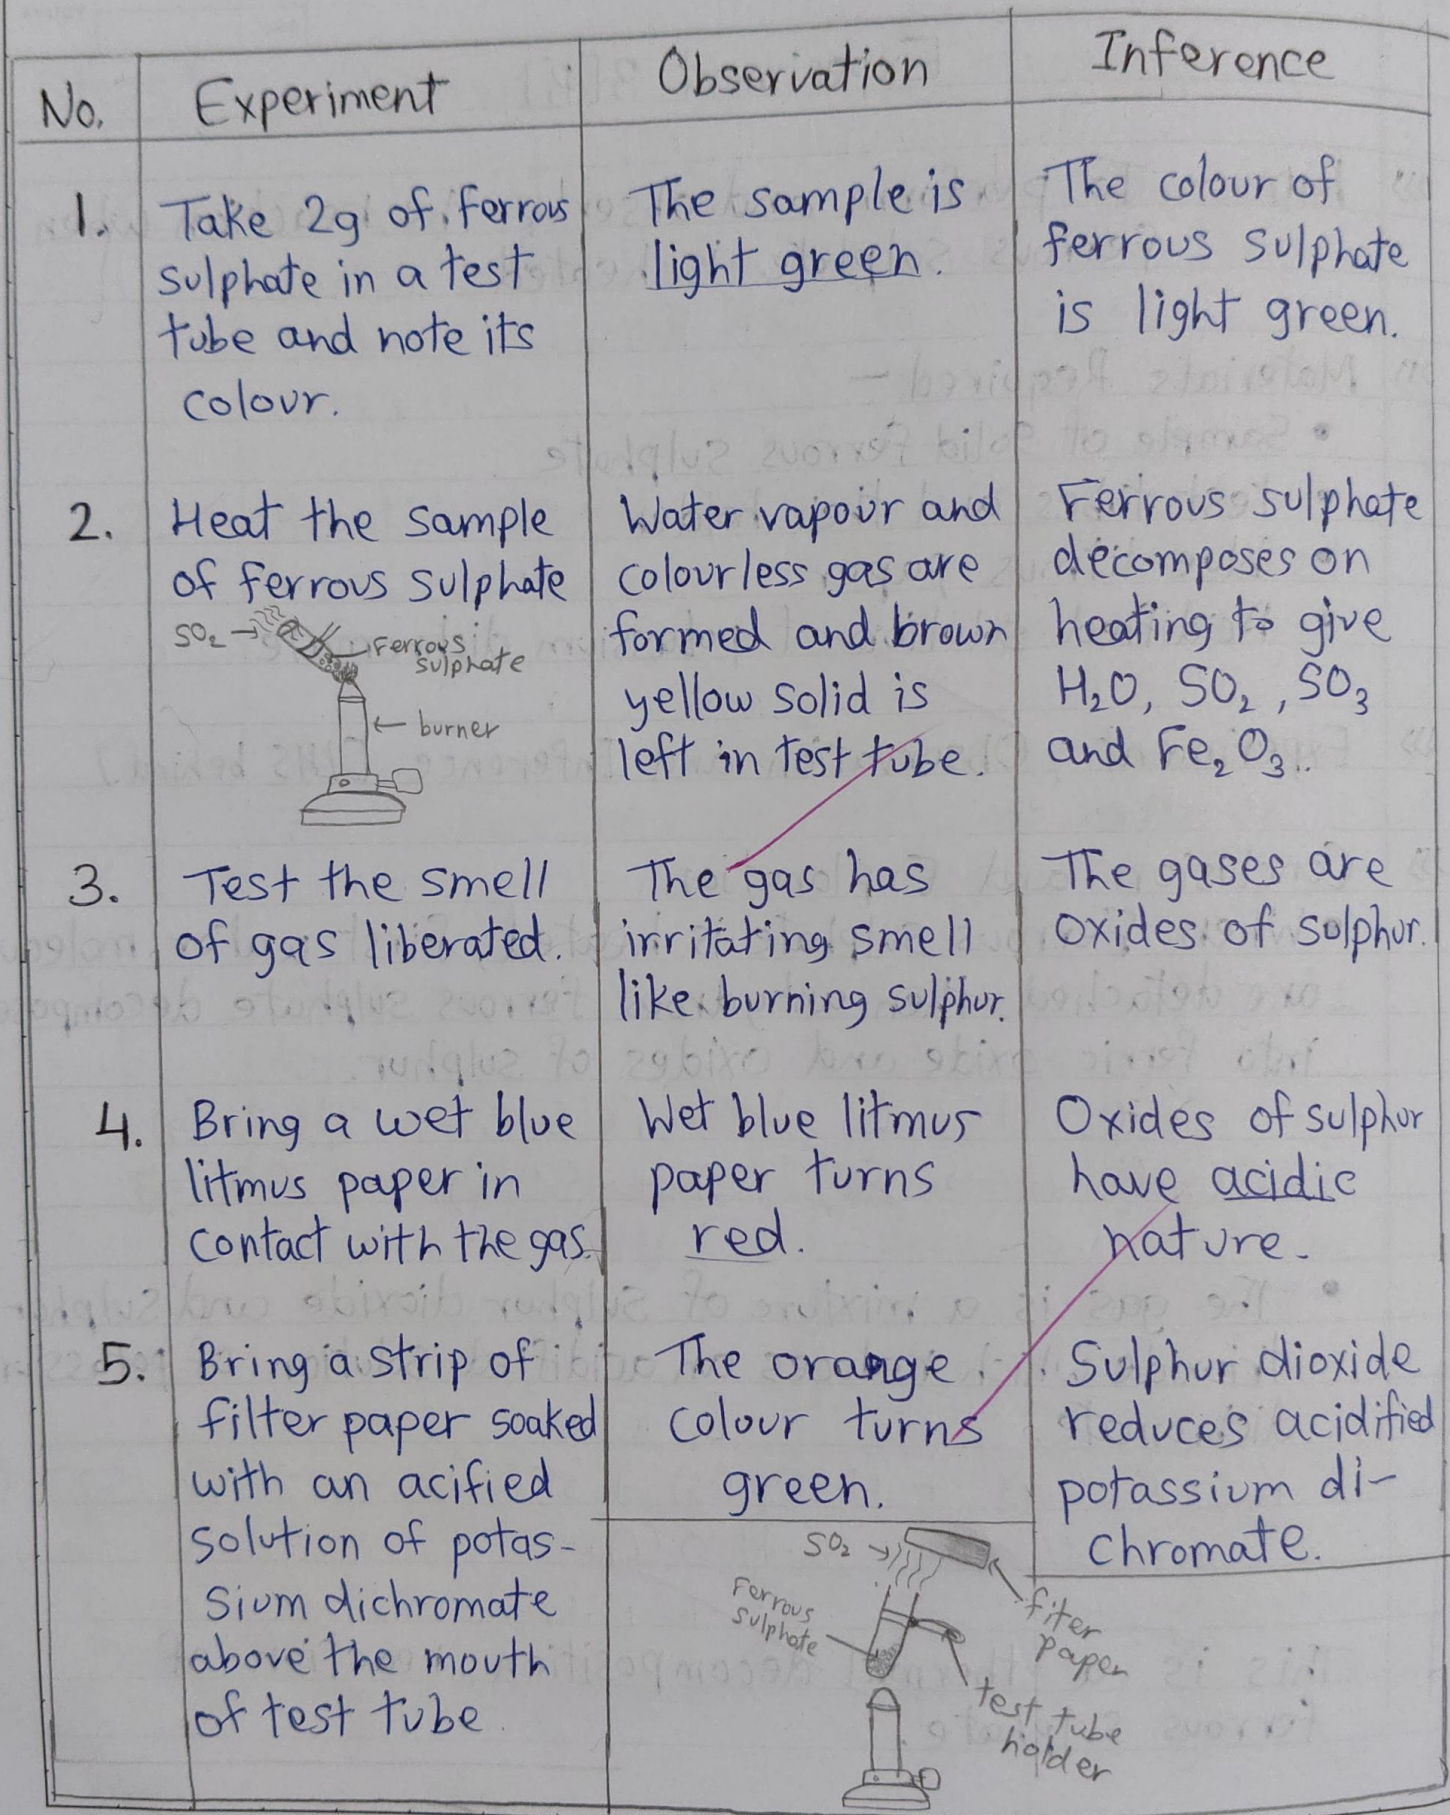 No.
Experiment
Observation
Inference
1.
Take 2g of ferrous
sulphate in a test
tube and note its
colour.
The sample is
light green.
The colour of
ferrous sulphate
is light green.
2.
Heat the sample
of ferrous sulphate
SO₂
Ferrous
sulphate
burner
Water vapour and
colourless gas are
formed and brown
yellow solid is
left in test tube.
Ferrous sulphate
decomposes on
heating to give
H₂O, SO₂, SO₃
and Fe₂O₃.
3.
Test the smell
of gas liberated.
The gas has
irritating smell
like burning sulphur.
The gases are
oxides of sulphur.
4.
Bring a wet blue
litmus paper in
contact with the gas.
Wet blue litmus
paper turns
red.
Oxides of sulphur
have acidic
nature.
5.
Bring a strip of
filter paper soaked
with an acified
solution of potas-
sium dichromate
above the mouth
of test tube
The orange
colour turns
green.
Sulphur dioxide
reduces acidified
potassium di-
chromate.
SO₂
Ferrous
sulphate
fiter
paper
test tube
holder